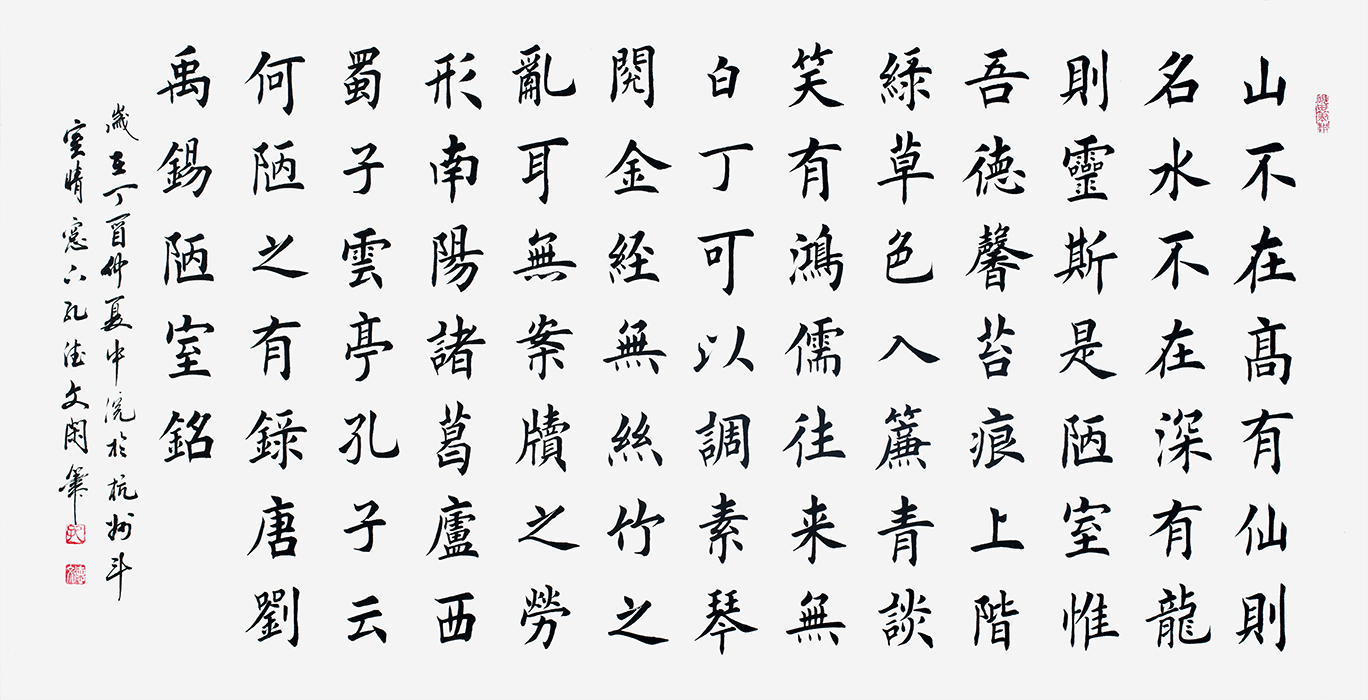 山不在髙有仙則
名水不在深有龍
則靈斯是陋室惟
吾德馨苔痕上階
緑草色入簾青談
笑有鴻儒往来無
白丁可以調素琴
閲金経無絲竹之
亂耳無案牘之勞
形南陽諸葛廬西
蜀子雲亭孔子云
何陋之有録唐劉
禹錫陋室銘
歲在丁酉仲夏中浣於杭州斗
室晴窓下孔德文閑筆